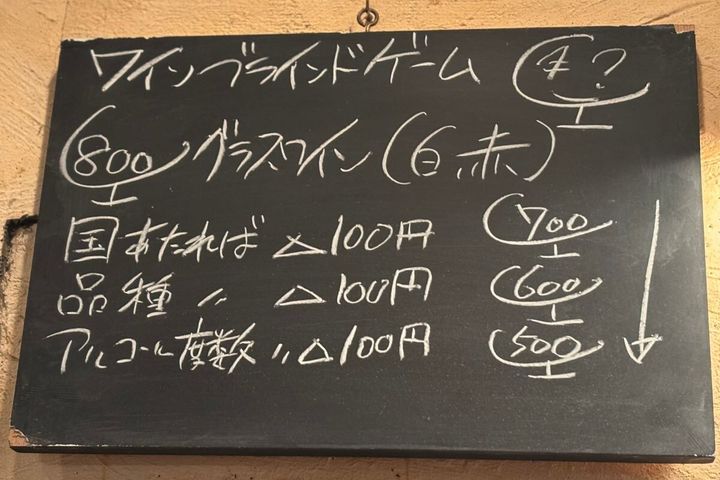 ワインブラインドゲーム ¥?
800 グラスワイン(白、赤)
国あたれば △100円 700
品種 〃 △100円 600
アルコール度数 〃 △100円 500